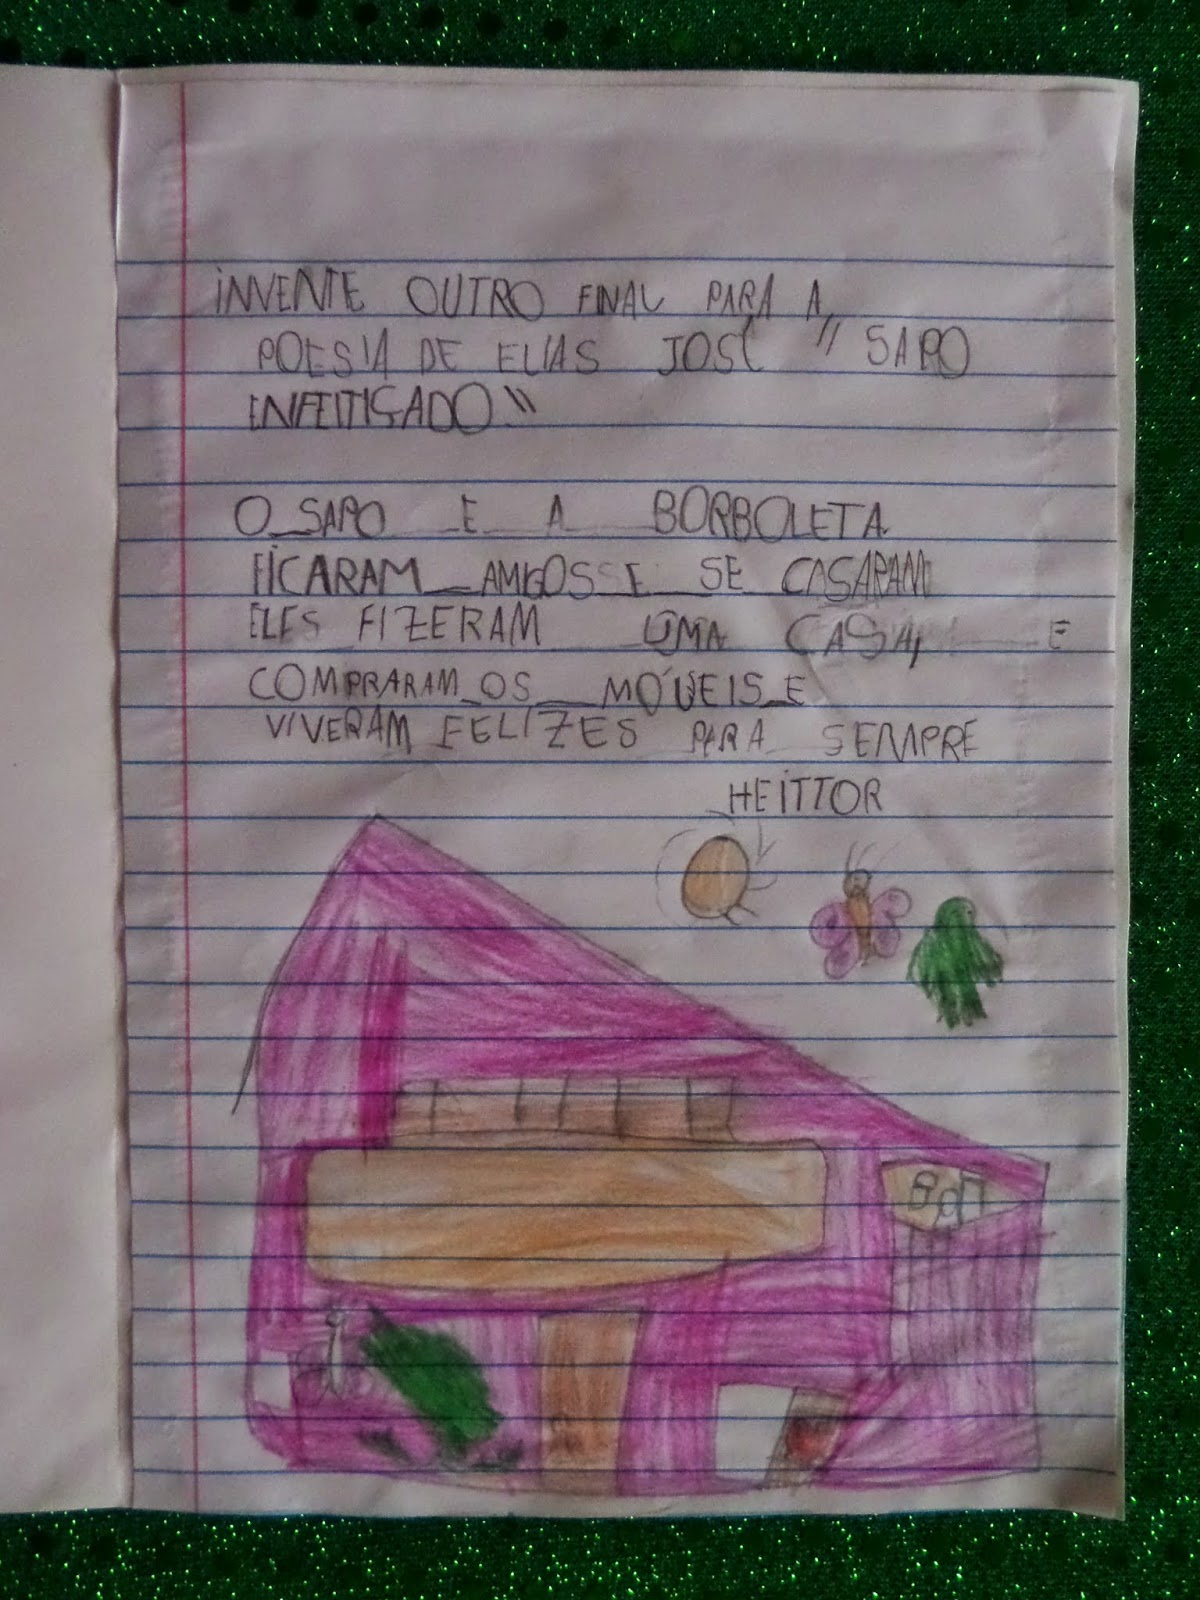 INVENTE OUTRO FINAL PARA A
POESIA DE ELIAS JOSÉ "SAPO
ENFEITIÇADO"
O SAPO E A BORBOLETA
FICARAM AMIGOS E SE CASARAM
ELES FIZERAM UMA CASA, E
COMPRARAM OS MÓVEIS E
VIVERAM FELIZES PARA SEMPRE
HEITTOR